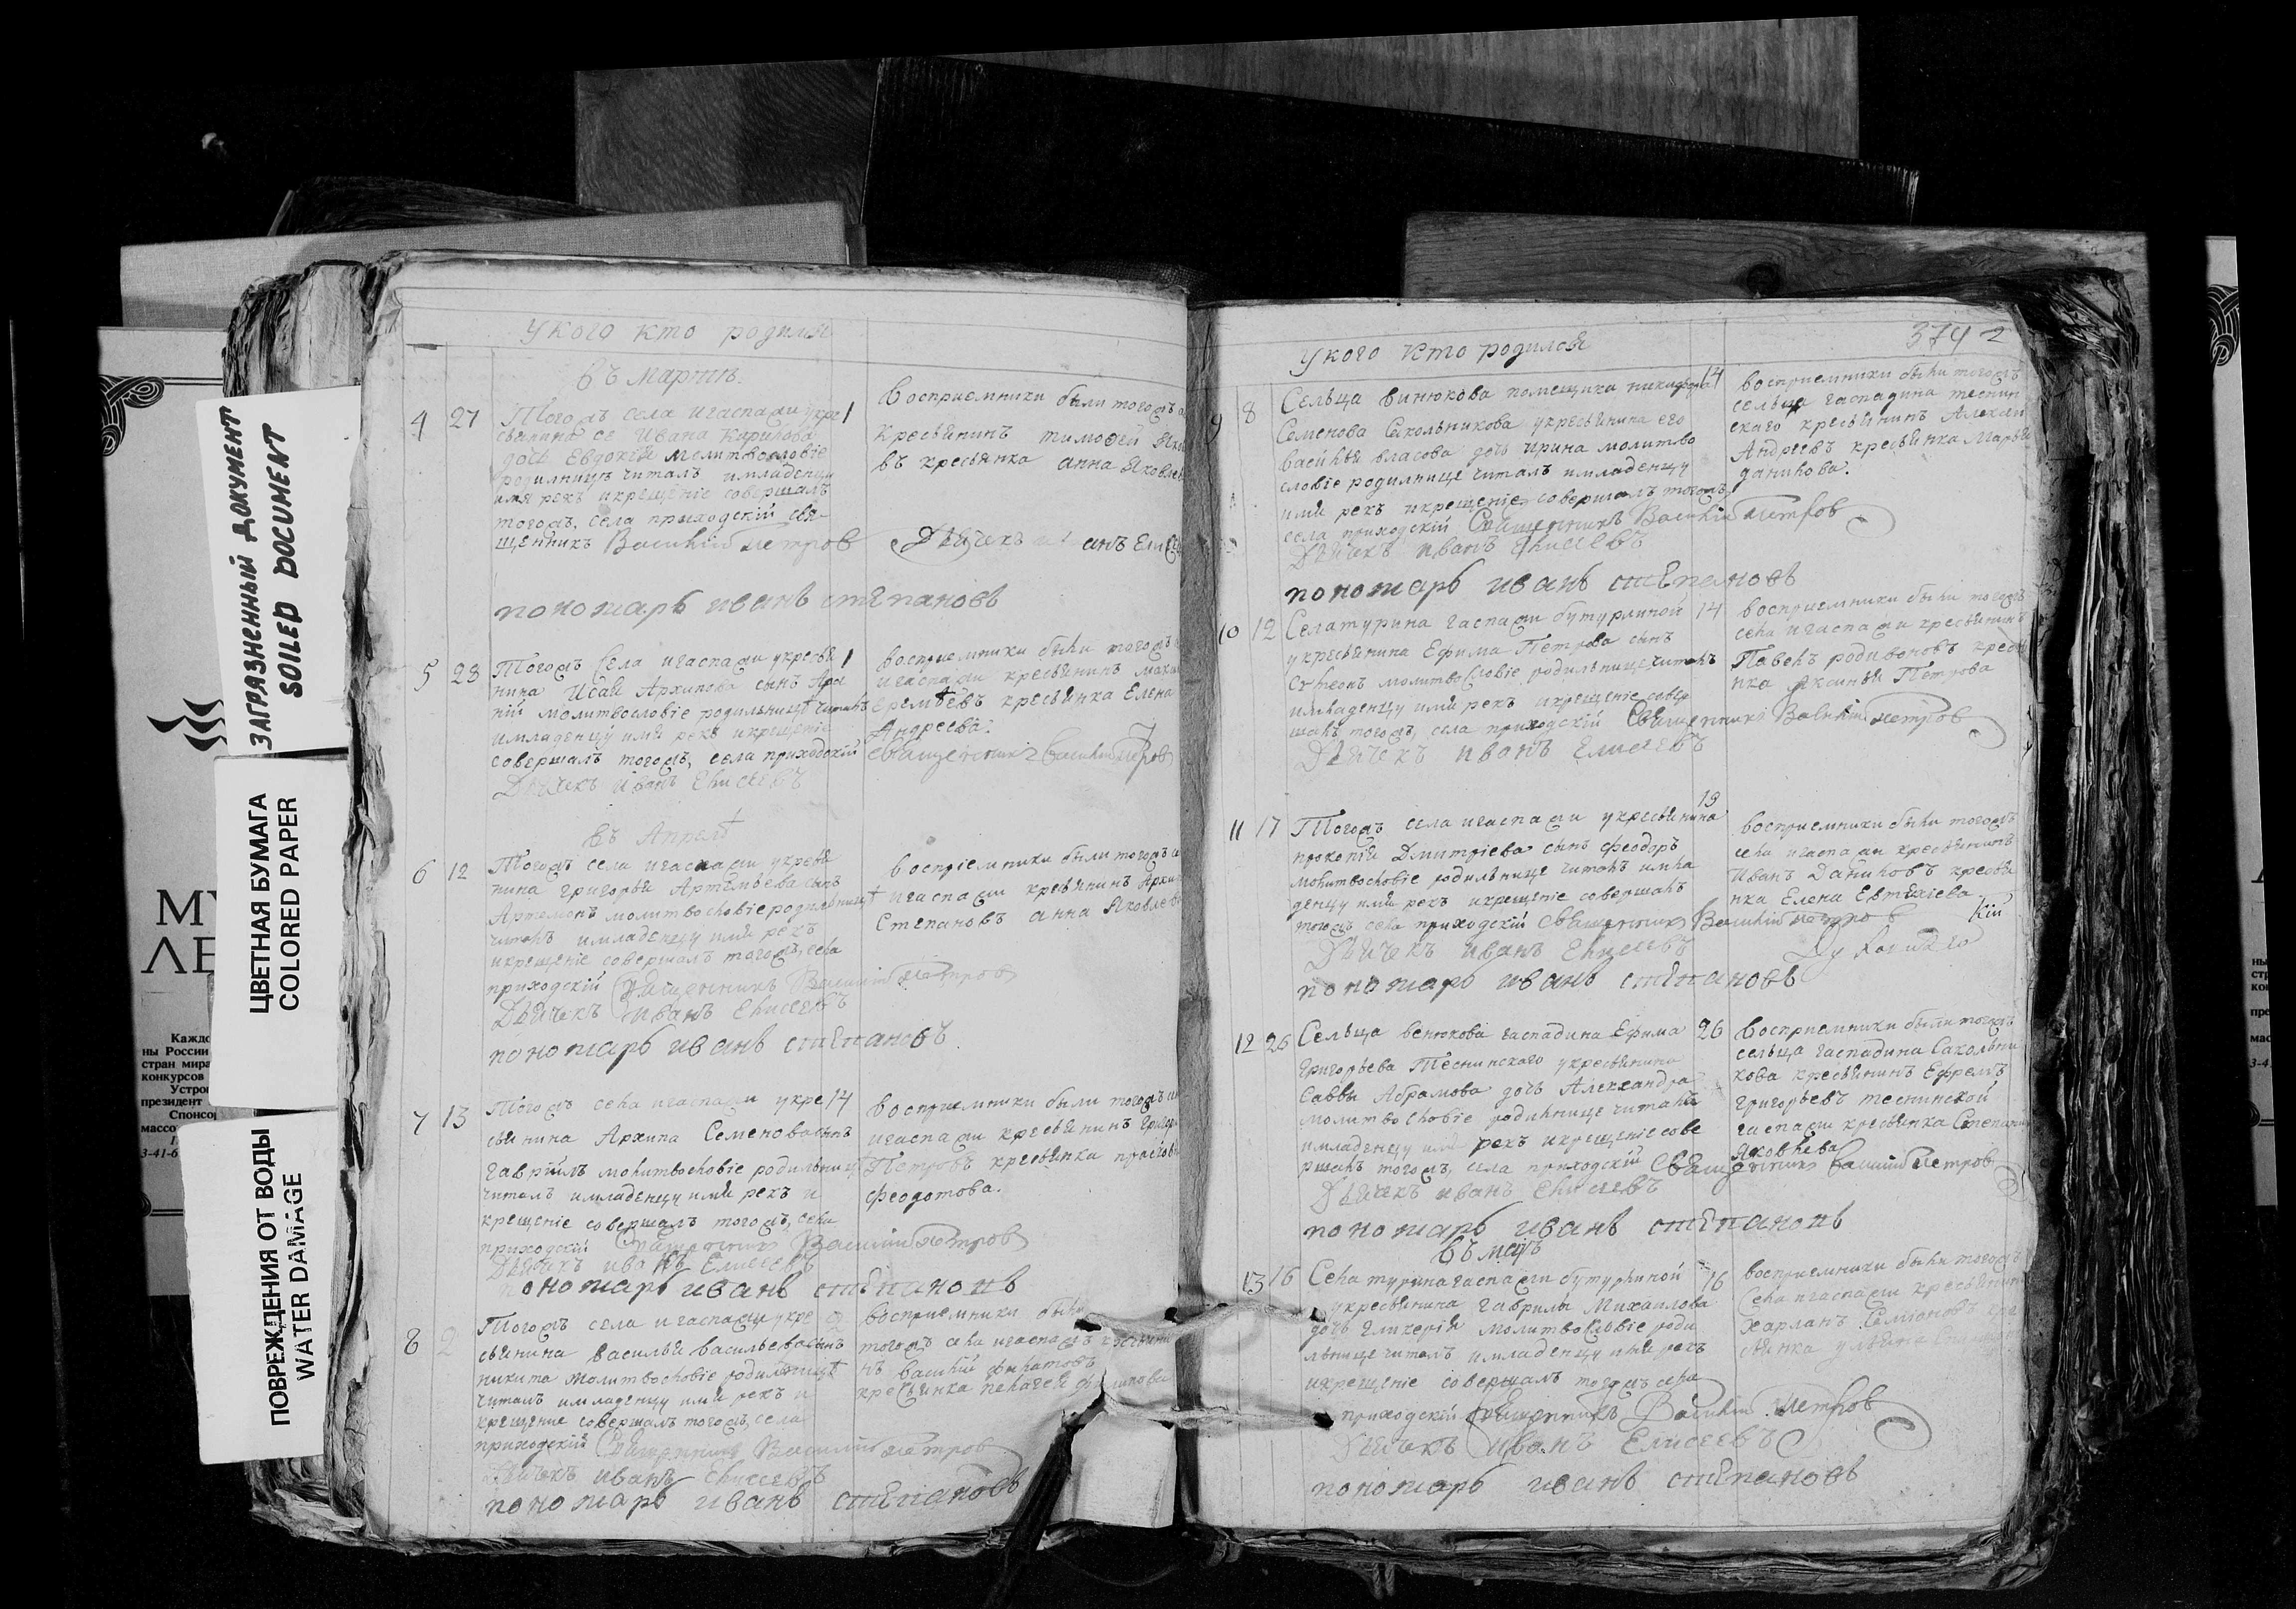 ЗАГРЯЗНЕННЫЙ ДОКУМЕНТ
SOILED DOCUMENT
ЦВЕТНАЯ БУМАГА
COLORED PAPER
ПОВРЕЖДЕНИЯ ОТ ВОДЫ
WATER DAMAGE
Каждо
ны России
стран мира
конкурсов
Устрои
президент
Спонсор
массо
3-41-6
У кого кто родился
въ Мартѣ.
4 27 Тогожъ села игаспажи укре 1
сьянина ее Ивана Карпова
дочь Евдокия молитвословіе
родилницѣ читалъ имладенцу
имя рекъ икрещеніе совершалъ
тогожъ села приходскій свя
щенникъ Василий Петров
восприемники были тогожъ
кресьянинъ тимофей
въ кресьянка анна Яковле
Дьячекъ иванъ Ели
пономарь иванъ степановъ
5 28 Тогожъ Села игаспажи укресья 1
нина Исая Архипова сынъ
молитвословіе родильницѣ читалъ
имладенцу имя рекъ икрещеніе
совершалъ тогожъ села приходскій
восприемники были тогожъ
игаспажи кресьянинъ
еремѣевъ кресьянка Елена
Андреева.
священникъ Василий Петров
Дьячекъ иванъ Елисеевъ
въ Апрелѣ
6 12 Тогожъ села игаспажи укресья
нина григорья Артемьева сынъ
Артемонъ молитвословіе родильницѣ
читалъ имладенцу имя рекъ
икрещеніе совершалъ тогожъ села
приходскій Священникъ Василий Петров
восприемники были тогожъ
игаспажи кресьянинъ Архи
Степановъ анна Яковлева
Дьячекъ иванъ Елисеевъ
пономарь иванъ степановъ
7 13 Тогожъ села игаспажи укре 14
сьянина Архипа Семенова сынъ
гаврїилъ молитвословіе родильницѣ
читалъ имладенцу имя рекъ и
крещеніе совершалъ тогожъ села
приходскій Священникъ Василий Петров
восприемники были тогожъ
игаспажи кресьянинъ григор
Петровъ кресьянка прасковья
федотова.
Дьячекъ иванъ Елисеевъ
пономарь иванъ степановъ
8 2 Тогожъ села игаспажи укре
сьянина василья васильева сынъ
никита молитвословіе родильницѣ
читалъ имладенцу имя рекъ и
крещение совершалъ тогожъ села
приходскій Священникъ Василий Петров
восприемники были
тогожъ села игаспажи кресьяни
нъ василий филатовъ
кресьянка пелагея филипова
Дьячекъ иванъ Елисеевъ
пономарь иванъ степановъ
374 2
У кого кто родился
9 8 Сельца винюкова помещика никифора 14
Семенова Сакольникова укресьянина его
василья власова дочь ирина молитво
словіе родилнице читалъ имладенцу
имя рекъ икрещеніе совершалъ тогожъ
села приходскій Священникъ Василий Петров
восприемники были тогожъ
сельца гаспадина теснин
скаго кресьянинъ Алексей
Андреевъ кресьянка Марья
данилова.
Дьячекъ иванъ Елисеевъ
пономарь иванъ степановъ
10 12 Села турина гаспажи бутурлиной 14
укресьянина Ефима Петрова сынъ
Сумеонъ молитвословіе родильнице читалъ
имладенцу имя рекъ икрещеніе совер
шалъ тогожъ села приходскій Священникъ Василий Петров
восприемники были тогожъ
села игаспажи кресьянинъ
Павелъ родивоновъ кресья
нка Аксинья Петрова
Дьячекъ иванъ Елисеевъ
11 17 Тогожъ села игаспажи укресьянина 19
прокопия Дмитріева сынъ феодоръ
молитвословіе родильнице читалъ имла
денцу имя рекъ икрещеніе совершалъ
тогожъ села приходскій Священникъ Василий Петров
восприемники были тогожъ
села игаспажи кресьянинъ
Иванъ Даниловъ кресья
нка Елена Евтѣхиева
Дьячекъ иванъ Елисеевъ
пономарь иванъ степановъ
12 26 Сельца венюкова гаспадина Ефима 26
Григорьева Теснинскаго укресьянина
Саввы Абрамова дочь Александра
молитвословіе родильнице читалъ
имладенцу имя рекъ икрещеніе сове
ршалъ тогожъ села приходскій Священникъ Василий Петров
восприемники были тогожъ
сельца гаспадина Сакольни
кова кресьянинъ Ефремъ
григорьевъ теснинской
гаспажи кресьянка Степанида
Яковлева
Дьячекъ иванъ Елисеевъ
пономарь иванъ степановъ
въ маѣ
13 16 Села турина гаспажи бутурлиной 16
укресьянина гаврилы Михаилова
дочь гликерія молитвословіе роди
льнице читалъ имладенцу имя рекъ
икрещеніе совершалъ тогожъ села
приходскій Священникъ Василий Петров
восприемники были тогожъ
Села игаспажи кресьянинъ
Харланъ Семионовъ кре
сьянка
Дьячекъ Иванъ Елисеевъ
пономарь иванъ степановъ